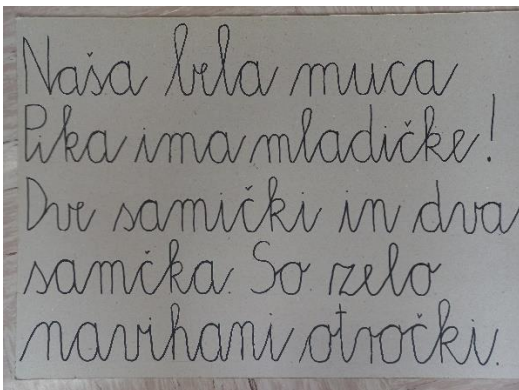 Naša bela muca
Pika ima mladičke!
Dve samički in dva
samčka. So zelo
navihani otročki.